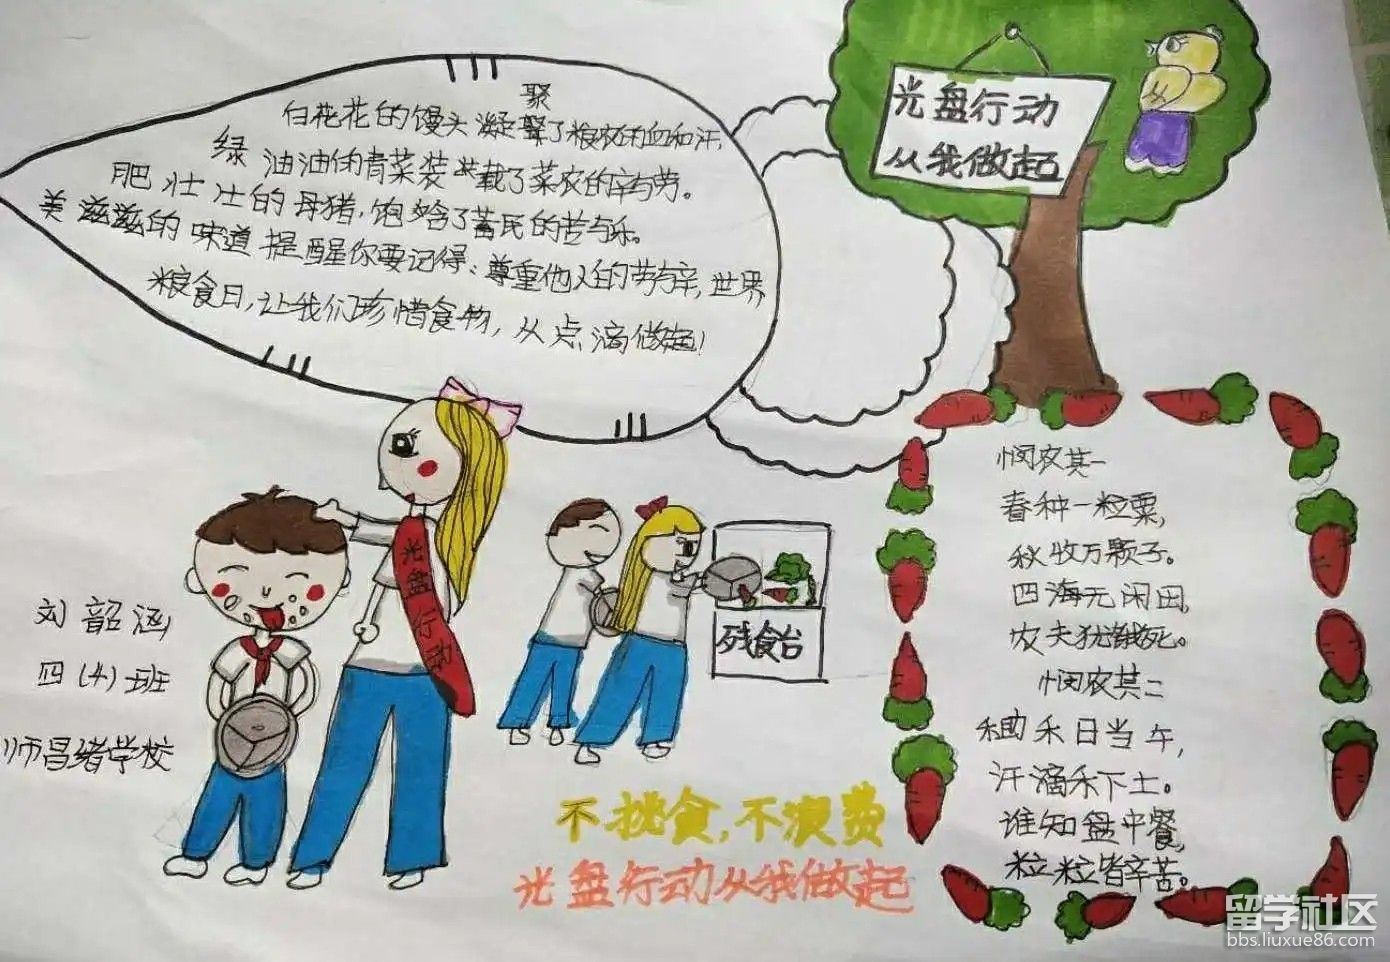 光盘行动
从我做起
聚
白花花的馒头凝聚了粮农的血和汗,
绿油油的青菜装载了菜农的辛与劳。
肥壮壮的母猪,饱含了畜民的苦与乐。
美滋滋的味道提醒你要记得:尊重他人的劳与辛,世界
粮食日,让我们珍惜食物,从点滴做起!
光盘行动
残食台
刘韶涵
四(4)班
师昌绪学校
不挑食,不浪费
光盘行动从我做起
悯农其一
春种一粒粟,
秋收万颗子。
四海无闲田,
农夫犹饿死。
悯农其二
锄禾日当午,
汗滴禾下土。
谁知盘中餐,
粒粒皆辛苦。
留学社区
bbs.liuxue86.com